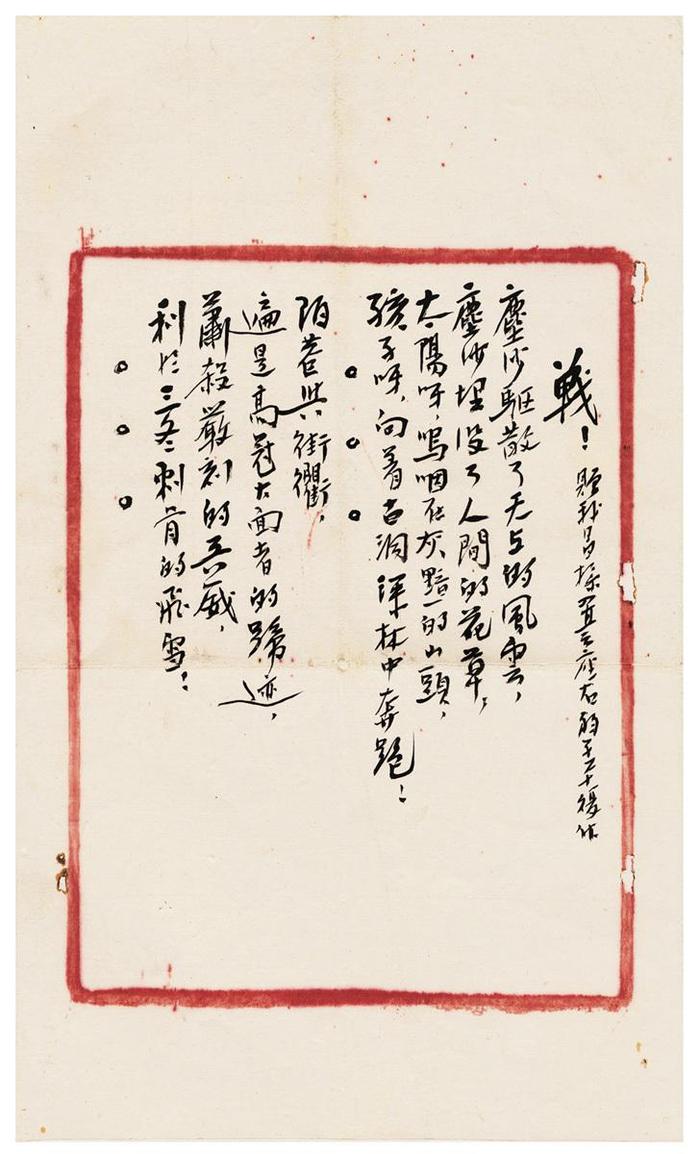 戰！ 置之座右
塵沙驅散了天上的風雲，
塵沙埋沒了人間的花草；
太陽呀，嗚咽在灰黯的山頭，
孩子呀，向着古洞深林中奔跑！
○ ○ ○
陌巷與街衢，
遍是高冠大面者的蹄迹，
肅殺嚴刻的兵威，
利於三冬刺骨的飛雪！
○ ○ ○